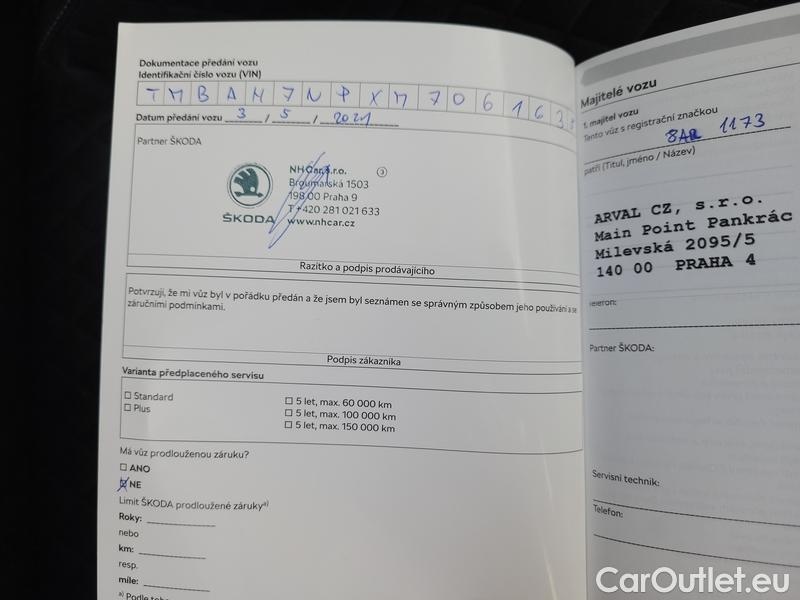 Dokumentace předání vozu
Identifikační číslo vozu (VIN)
TMBAH7NPXM706163
Datum předání vozu 3 / 5 / 2021
Partner ŠKODA
NHCar, s.r.o.
3
Broumarská 1503
198 00 Praha 9
ŠKODA
T +420 281 021 633
www.nhcar.cz
Razítko a podpis prodávajícího
Potvrzuji, že mi vůz byl v pořádku předán a že jsem byl seznámen se správným způsobem jeho používání a se
záručními podmínkami.
Podpis zákazníka
Varianta předplaceného servisu
Standard
Plus
5 let, max. 60 000 km
5 let, max. 100 000 km
5 let, max. 150 000 km
Má vůz prodlouženou záruku?
ANO
NE
Limit ŠKODA prodloužené záruky a)
Roky:
nebo
km:
resp.
míle:
Majitelé vozu
1. majitel vozu
Tento vůz s registrační značkou
8AR 1173
patří (Titul, jméno / Název)
ARVAL CZ, s.r.o.
Main Point Pankrác
Milevská 2095/5
140 00 PRAHA 4
Telefon:
Partner ŠKODA:
Servisní technik:
Telefon:
CarOutlet.eu